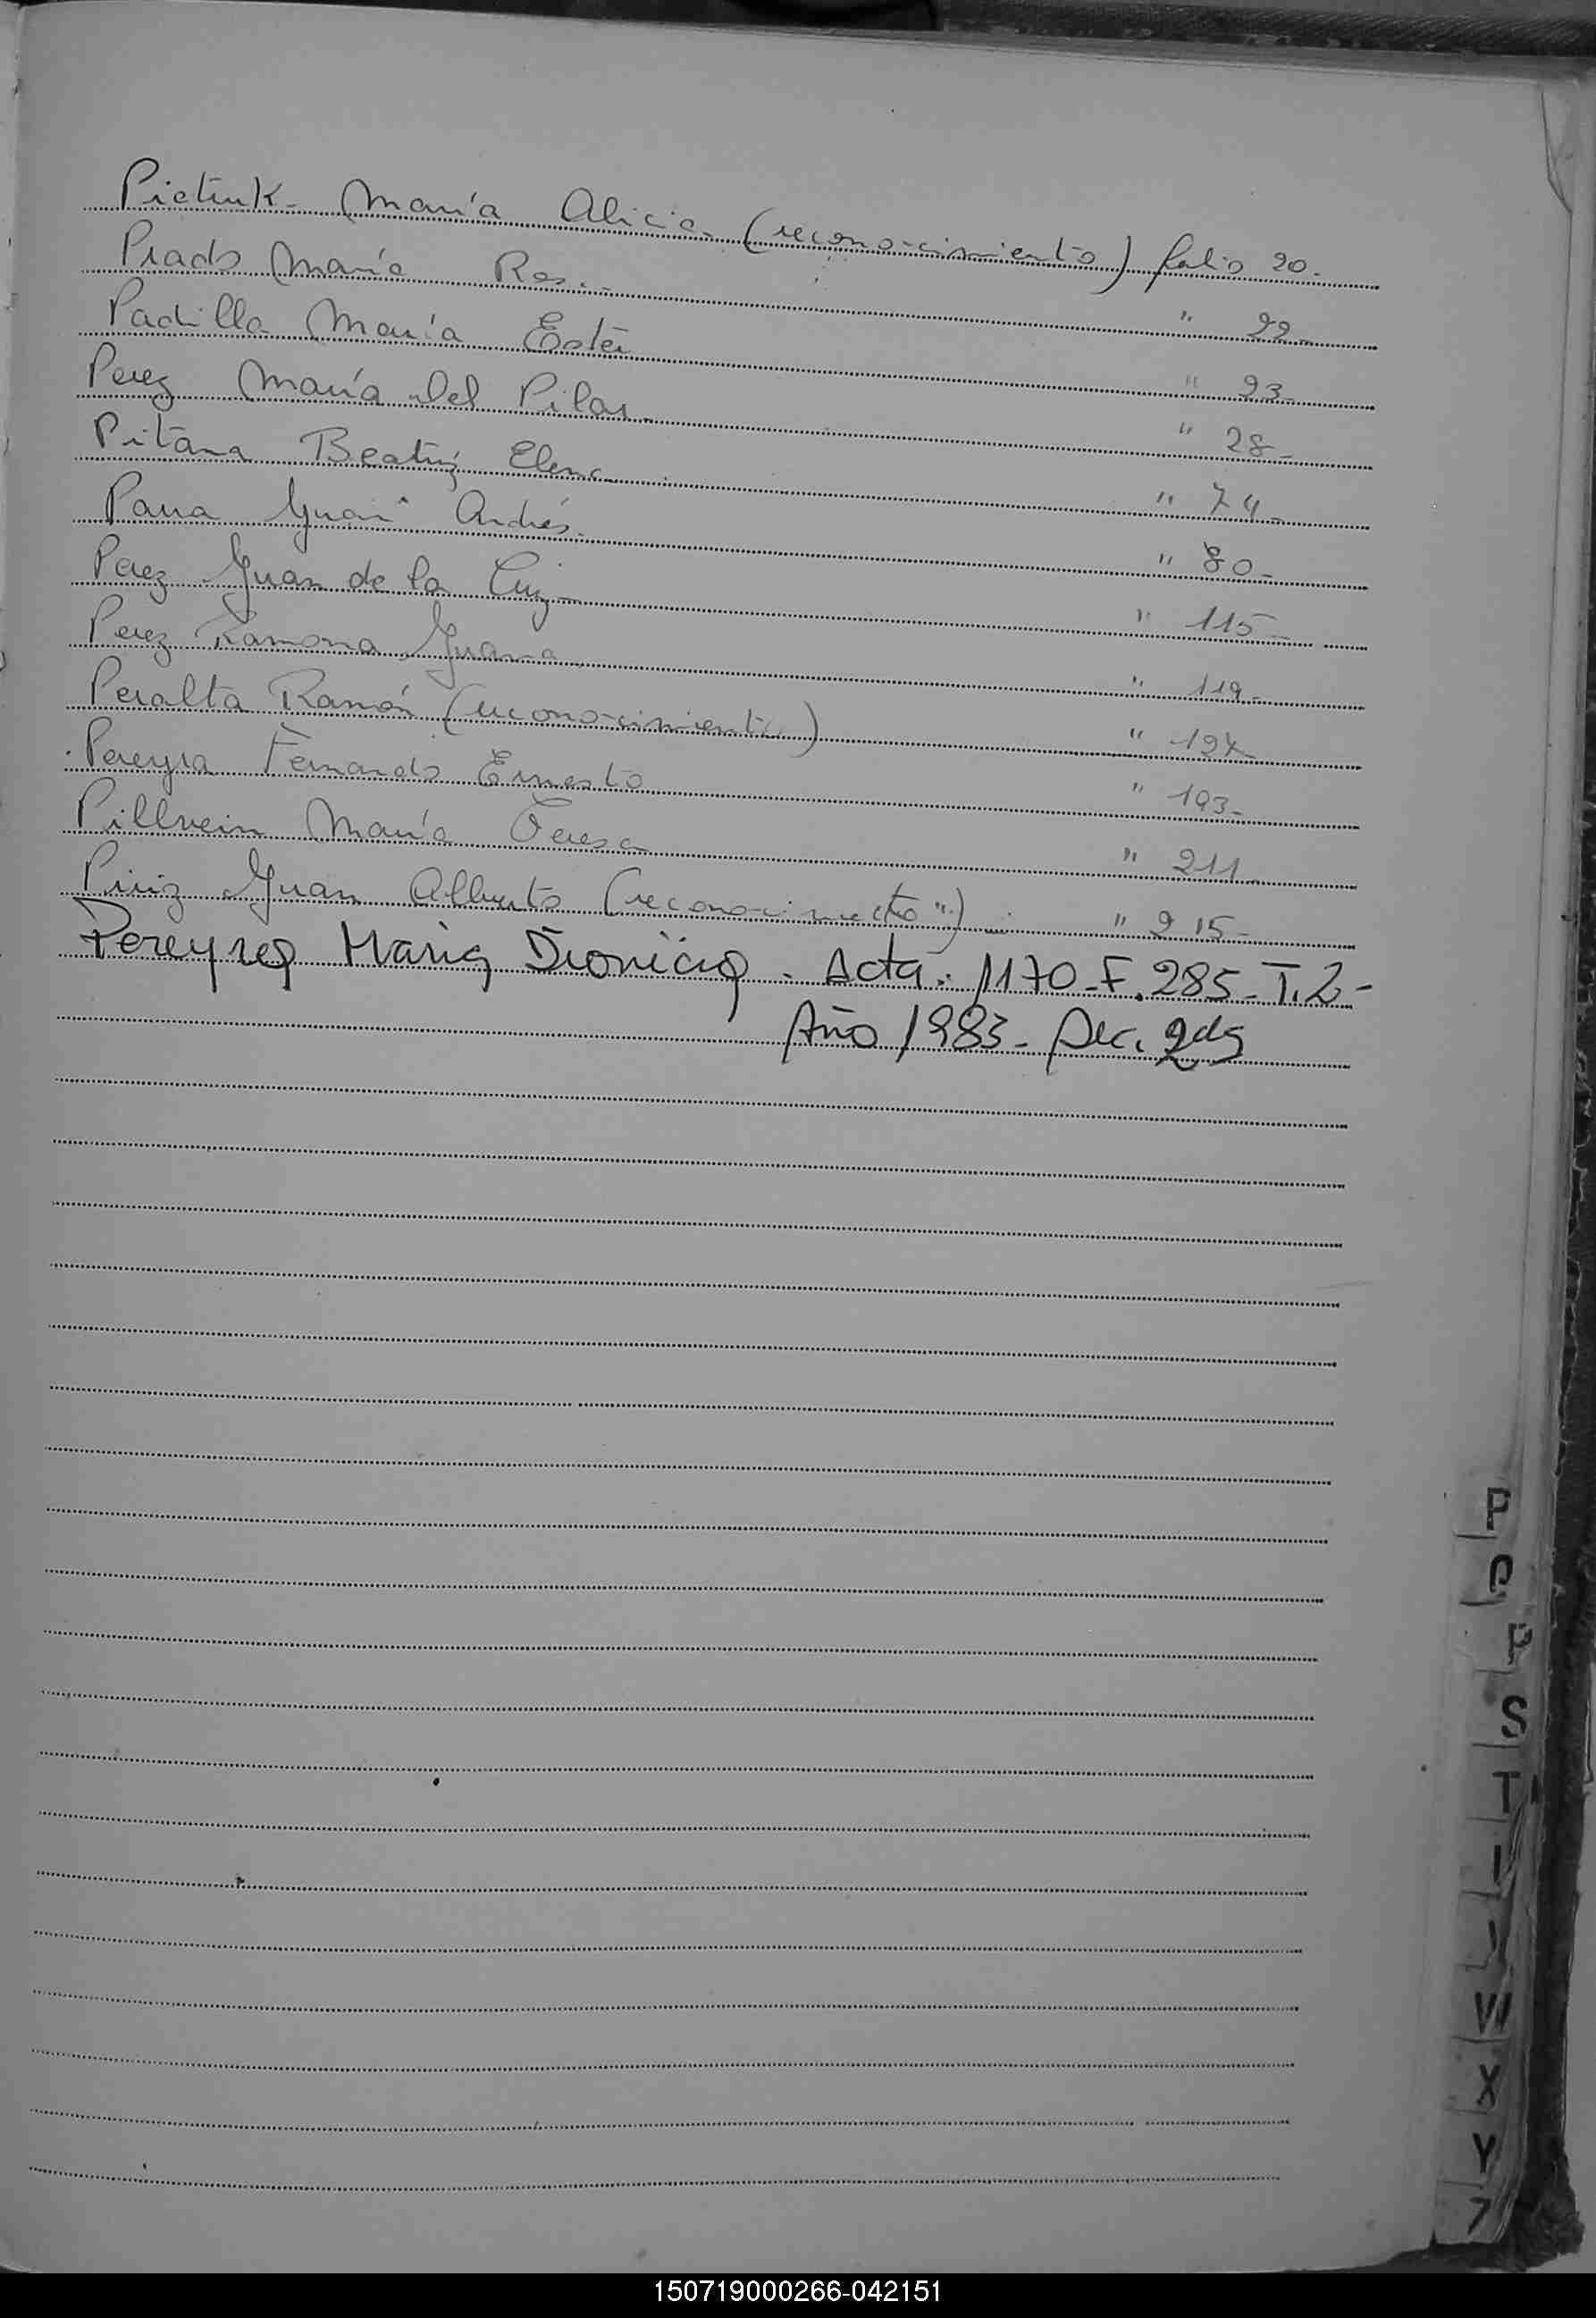 Pietruk María Alicia (reconocimiento) folio 20.
Prado María Rosa " 22.
Padilla María Ester " 23.
Perez María Del Pilar " 28-
Pitana Beatriz Elena " 74-
Parra Juan Andrés " 80-
Perez Juan de la Cruz " 115-
Perez Ramona Juana " 119-
Peralta Ramón (reconocimiento) "
Pereyra Fernando Ernesto " 193-
Pillvein María Teresa " 211-
Piriz Juan Alberto (reconocimiento) " 215-
Pereyra Maria Dionicia. Acta: 1170-F.285-T.2-
Año 1983- Sec. 2da
P
Q
R
S
T
W
X
Y
150719000266-042151